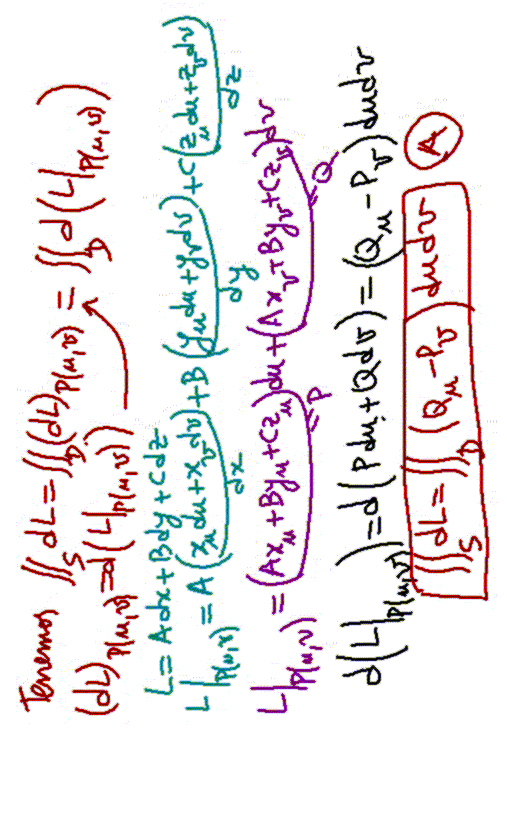 Tenemos ∬_S dL = ∬_D (dL)_{P(u,v)} = ∬_D d(L|_{P(u,v)})
(dL)_{P(u,v)} = d(L|_{P(u,v)})
L = Adx + Bdy + Cdz
L|_{P(u,v)} = A(x_u du + x_v dv) + B(y_u du + y_v dv) + C(z_u du + z_v dv)
dx dy dz
L|_{P(u,v)} = (Ax_u + By_u + Cz_u)du + (Ax_v + By_v + Cz_v)dv
= P = Q
d(L|_{P(u,v)}) = d(Pdu + Qdv) = (Q_u - P_v)dudv
∬_S dL = ∬_D (Q_u - P_v) dudv A